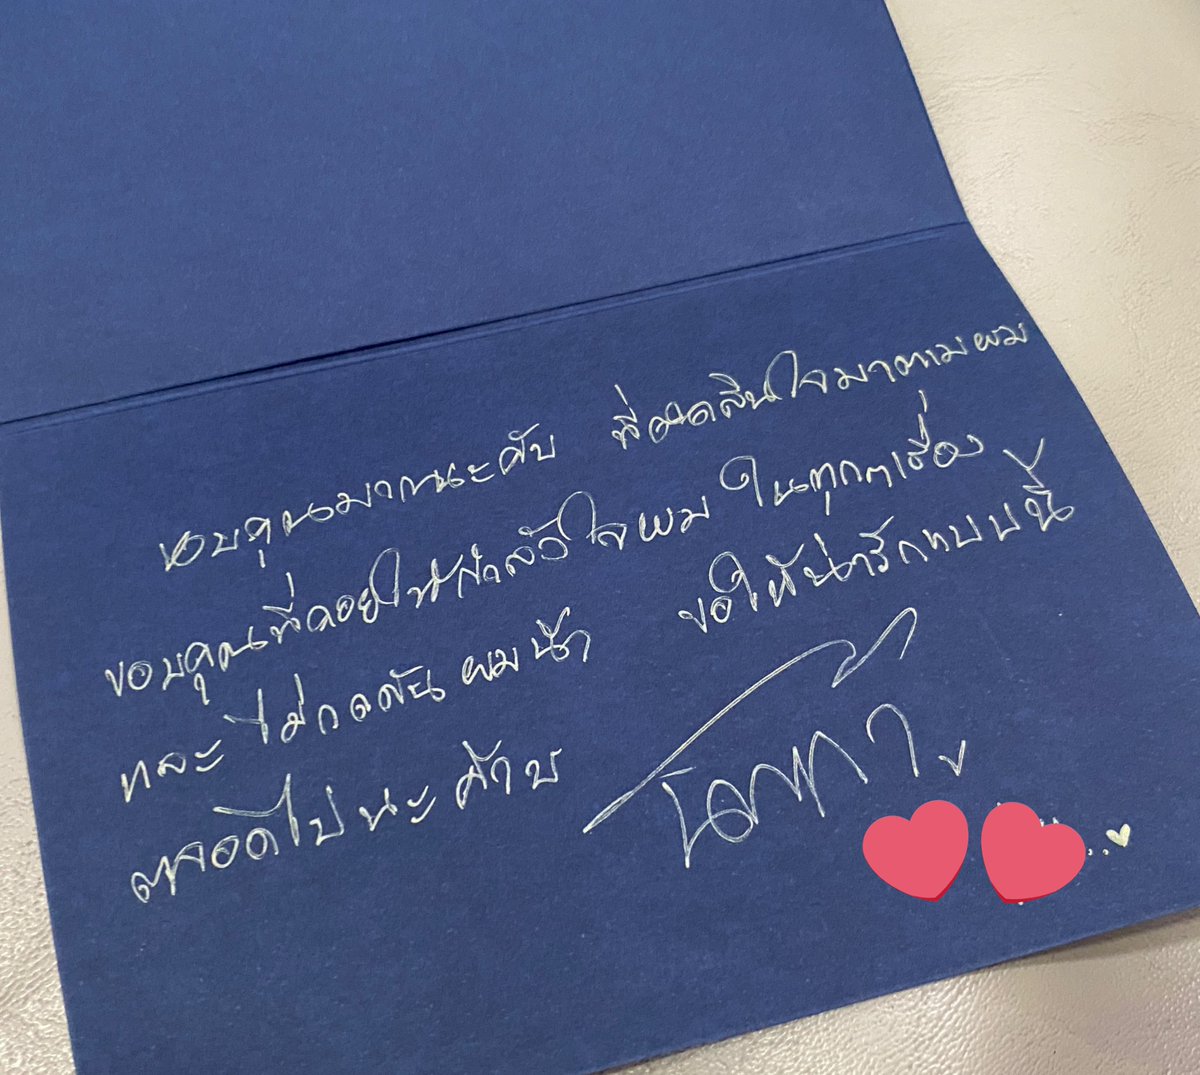 ขอบคุณมากนะคับ ที่ตัดสินใจมาตามผม
ขอบคุณที่คอยให้กำลังใจผม ในทุกๆเรื่อง
และ ไม่กดดันผมน้า ขอให้น่ารักแบบนี้
ตลอดไปนะค้าบ